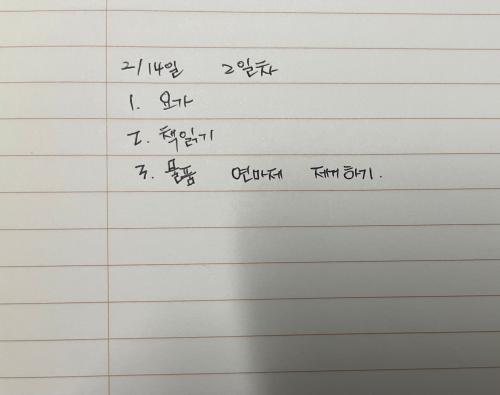 2/14일 2일차
1. 요가
2. 책읽기
3. 물품 연마제 제거하기.